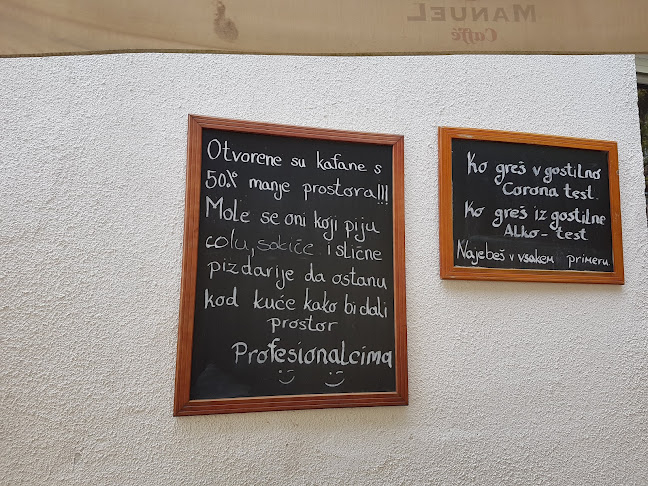 MANUEL
Caffé
Otvorene su kafane s
50% manje prostora!!!
Mole se oni koji piju
colu, sokiće i slične
pizdarije da ostanu
kod kuće kako bi dali
prostor
Profesionalcima
Ko greš v gostilno
Corona test.
Ko greš iz gostilne
ALko - test
Najebeš v vsakem primeru.